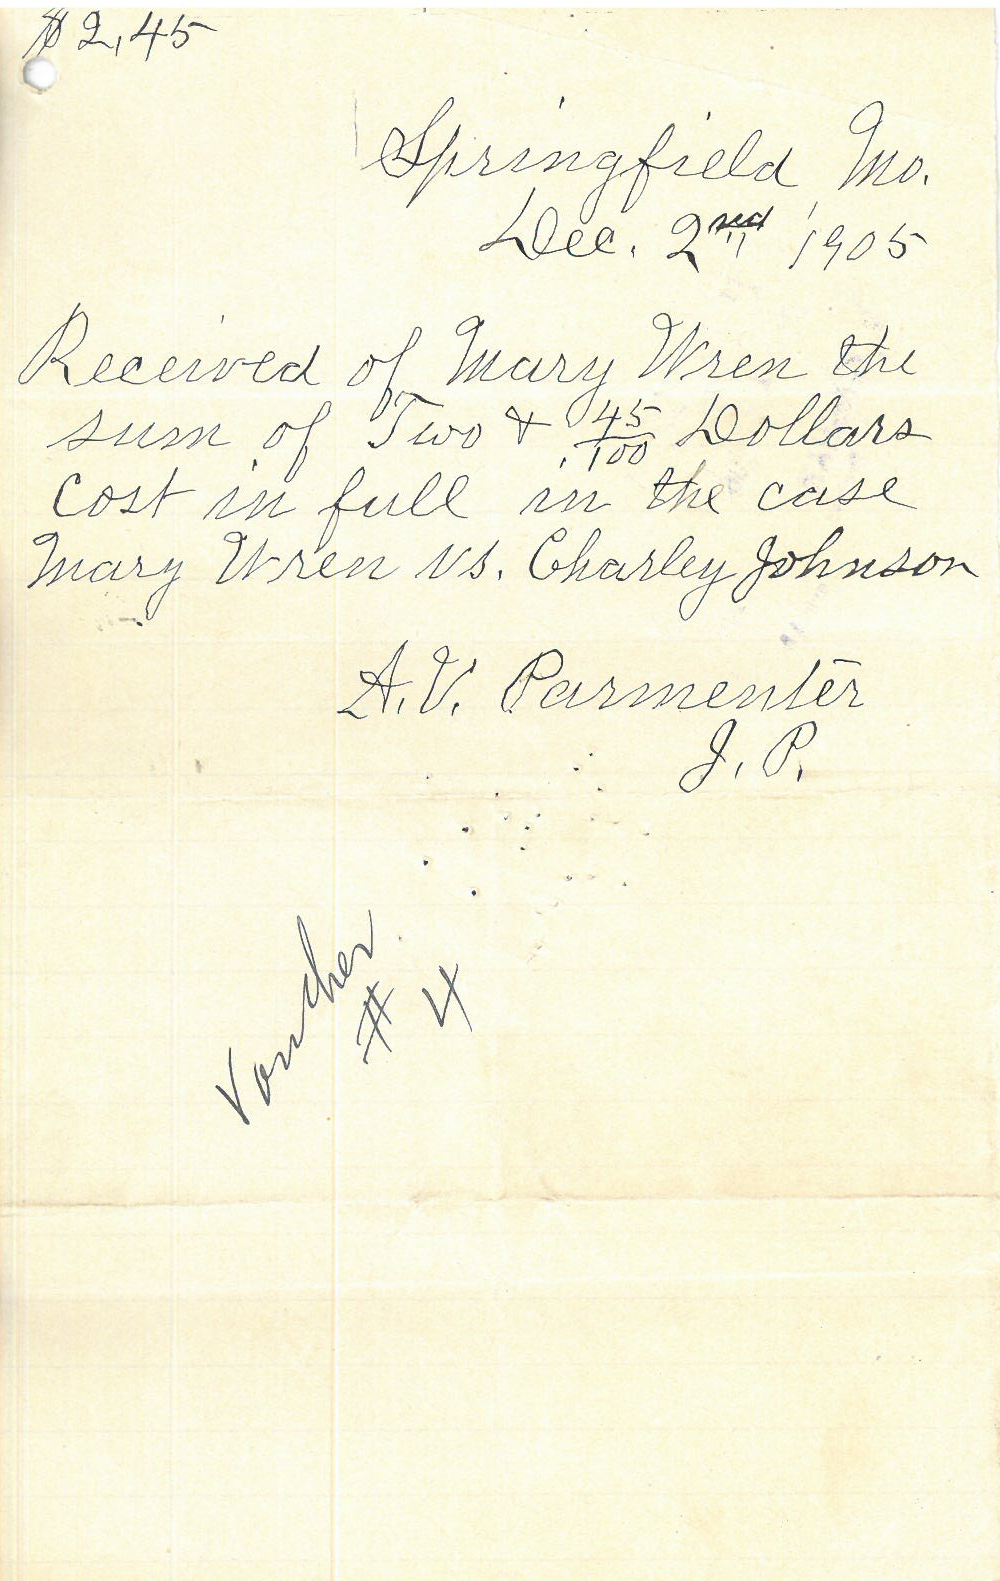 $2,45
Springfield Mo.
Dec. 2nd 1905
Received of Mary Wren the
sum of Two & 45/100 Dollars
Cost in full in the case
Mary Wren vs. Charley Johnson
A.V. Parmenter
J. P.
Voucher
# 4